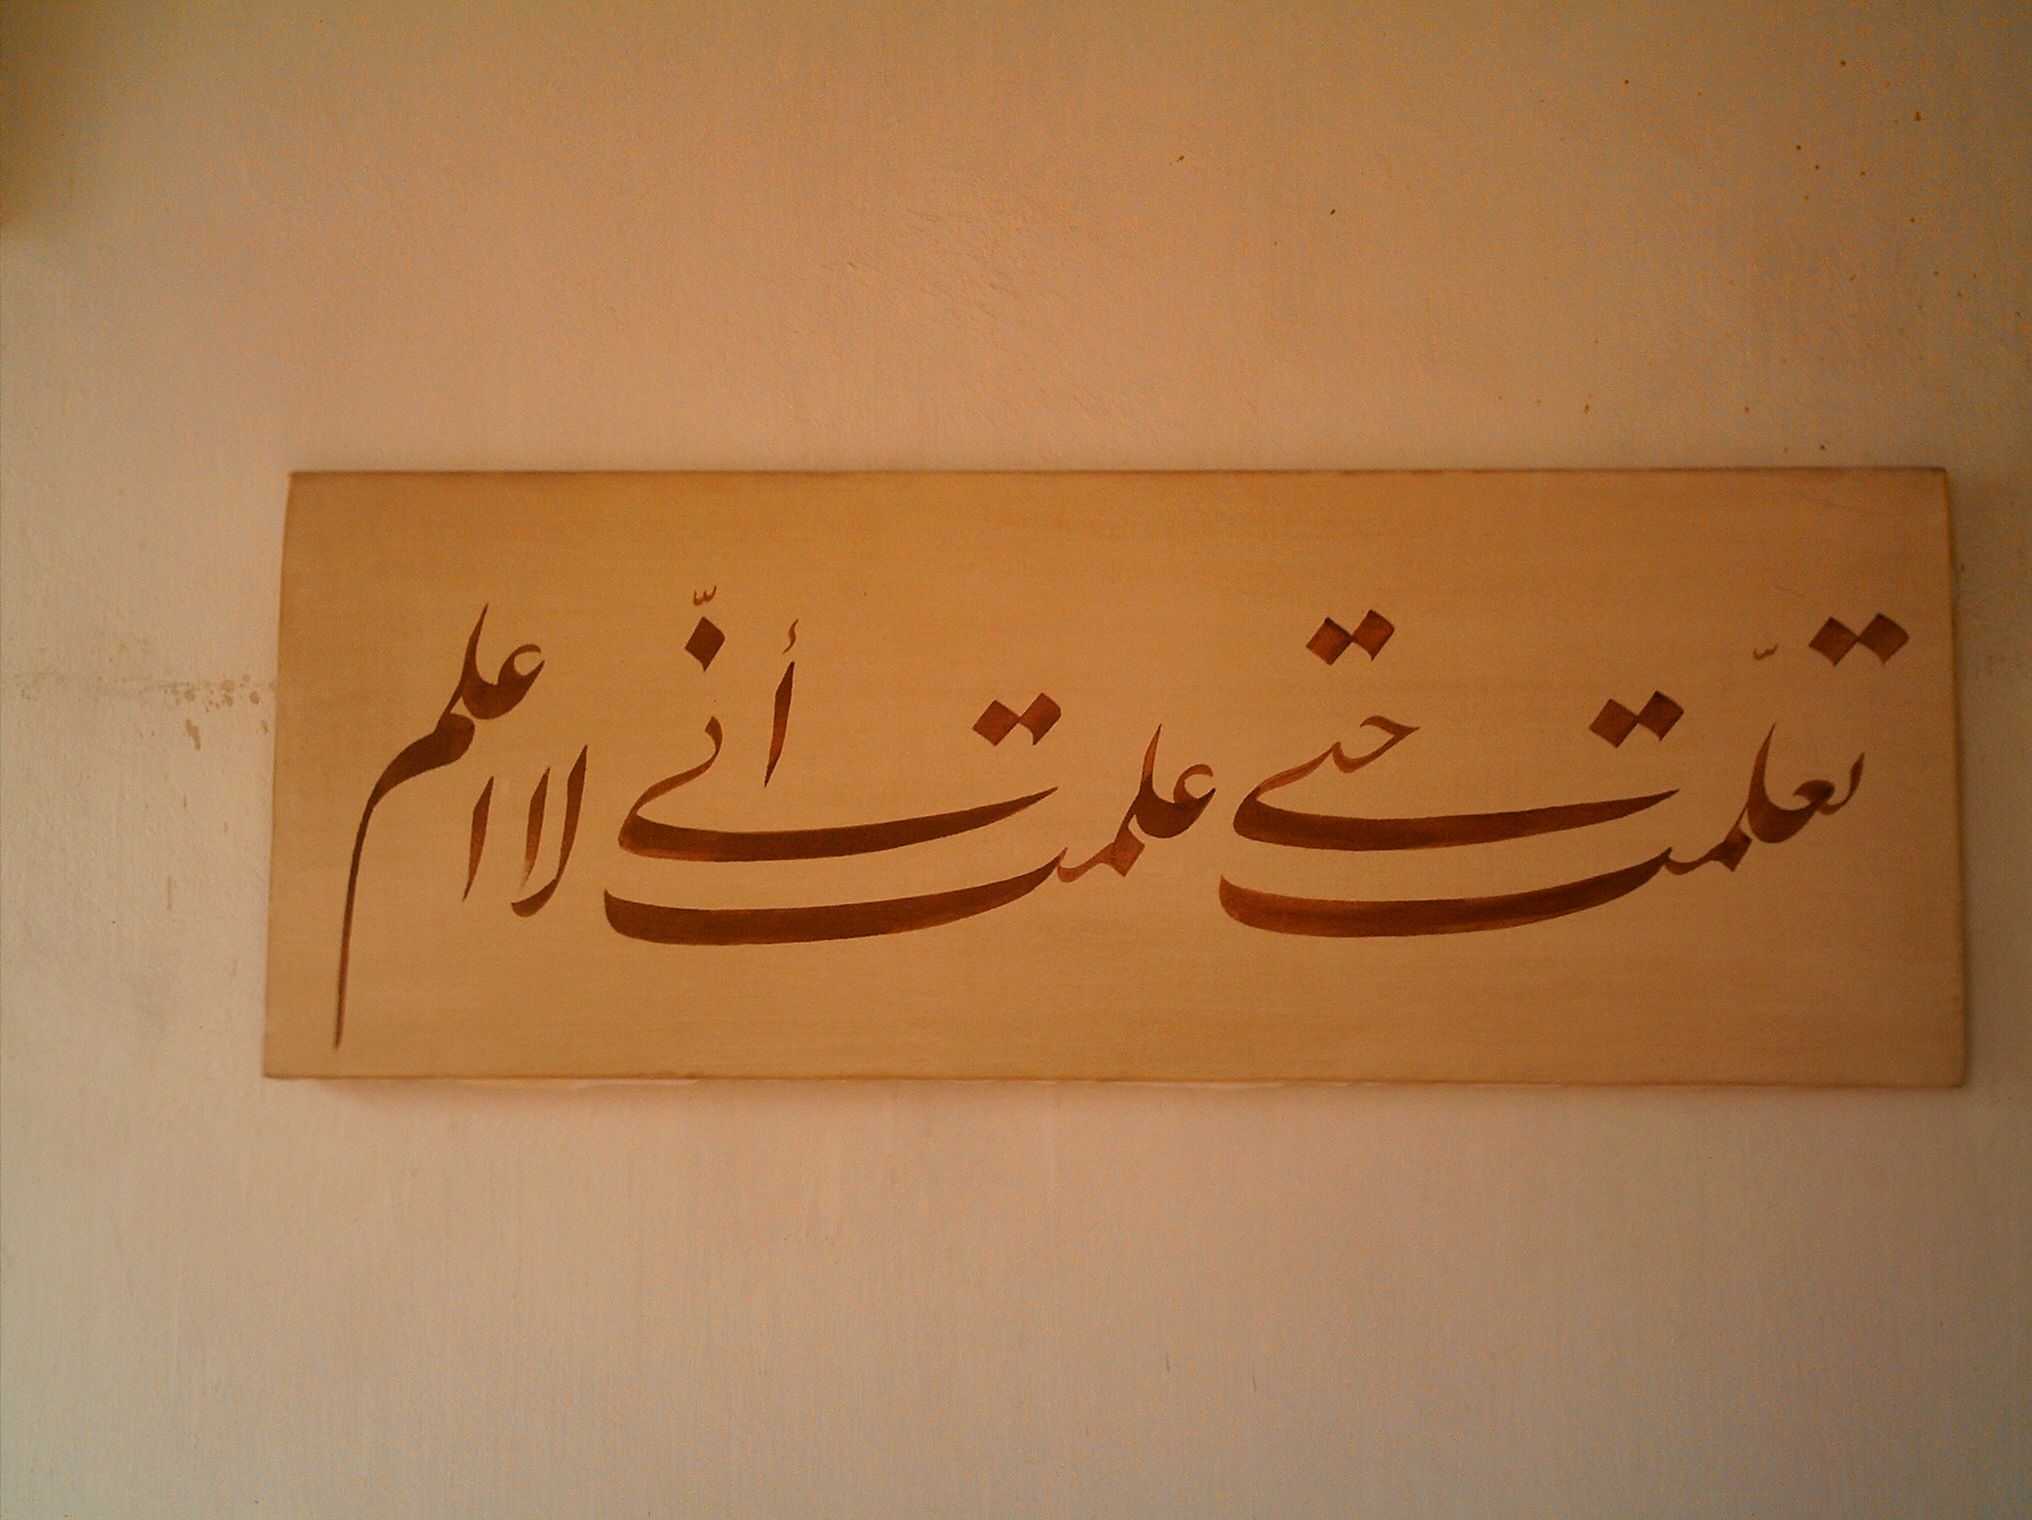 تعلّمت حتى علمت أنّي لا اعلم